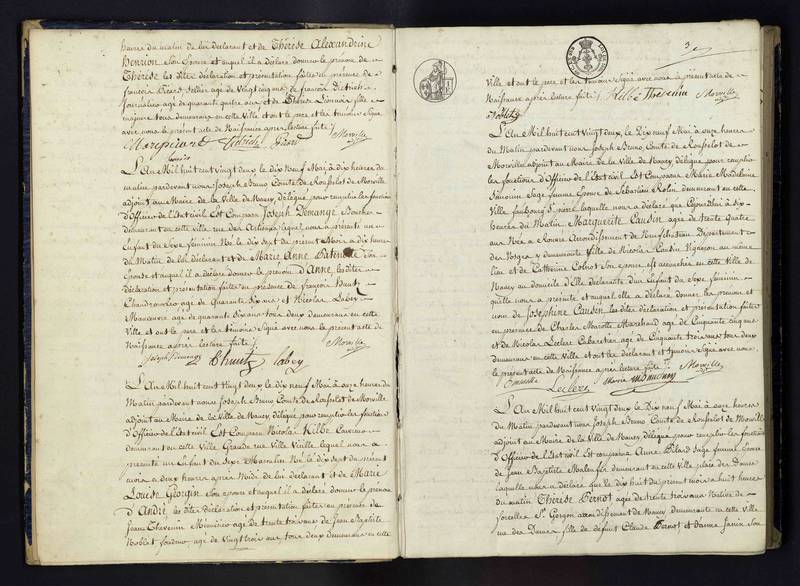 heures du matin de lui déclarant et de Thérèse Alexandrine
Henrion son Epouse et auquel il a déclaré donner le prénom de
Thérèse les dites déclaration et présentation faites en présence de
françois Sellier agé de vingt cinq ans de françois Dietrich
Journalier age de quarante quatre ans et de Thérèse fille
majeure tous demeurans en cette Ville et ont le pere et les témoins signé
avec nous le présent acte de Naissance après lecture faite
Morville
L'An Mil huit cent vingt deux le dix neuf Mai à dix heures du
matin pardevant nous Joseph Bruno Comte de Rousselot de Morville
adjoint au Maire de la Ville de Nancy, délégué pour remplir les fonctions
d'Officier de l'Etat civil Est Comparu Joseph Demange Boucher
demeurant en cette ville rue des Artisans lequel nous a présenté un
Enfant du Sexe féminin Né le dix sept du présent Mois à dix heures
du Matin de lui déclarant et de Marie Anne son
Epouse et auquel il a déclaré donner le prénom d'Anne les dites
déclaration et présentation faites en présence de françois
Chaudronnier age de quarante six ans et Nicolas Labey
Manoeuvre age de quarante six ans tous deux demeurans en cette
Ville et ont le pere et les témoins Signé avec nous le présent acte de
Naissance après Lecture faite
Joseph Demange Labey Morville
L'An Mil huit cent vingt deux le dix neuf Mai à onze heures du
Matin pardevant nous Joseph Bruno Comte de Rousselot de Morville
adjoint au Maire de la Ville de Nancy, délégué pour remplir les fonctions
d'Officier de l'Etat civil Est Comparu Nicolas Kilbe
demeurant en cette Ville Grande rue Ville Vieille lequel nous a
présenté un Enfant du Sexe Masculin Né le dix sept du présent
mois à deux heures après Midi de lui déclarant et de Marie
Louise Georgin Son épouse et auquel il a déclaré donner le prénom
d'André les dites déclaration et présentation faites en présence de
Jean Thevenin age de trente trois ans de Jean Baptiste
Noblet age de vingt trois ans tous deux demeurans en cette
3
Ville et ont le pere et les temoins Signé avec nous le présent acte de
Naissance après lecture faite Kilbe Thevenin Morville
Noblet
L'An Mil huit cent Vingt deux, le Dix neuf Mai à onze heures
du Matin pardevant nous Joseph Bruno Comte de Rousselot de
Morville adjoint au Maire de la Ville de Nancy délégué pour remplir
les fonctions d'Officier de l'Etat civil Est Comparue Marie Madeleine
Sage femme Epouse de Sébastien Robin demeurant en cette
Ville faubourg St pierre laquelle nous a déclaré que Cejourd'hui à dix
heures du Matin Marguerite Caudin agée de trente quatre
ans Née à Arrondissement de Neufchateau Département
des Vosges y demeurante fille de Nicolas Caudin Vigneron au même
lieu et de Catherine Colnot Son épouse est accouchée en cette Ville de
Nancy au domicile d'Elle déclarante d'un Enfant du Sexe féminin
qu'elle nous a présenté et auquel elle a déclaré donner les prénom et
nom de Josephine Caudin les dites déclaration et présentation faites
en présence de Charles Marchand age de Cinquante cinq ans
et de Nicolas Leclerc Cabaretier age de Cinquante trois ans tous deux
demeurans en cette Ville et ont les déclarant et témoins Signé avec nous
le présent acte de Naissance après lecture faite Morville
Leclerc Marie
L'An Mil huit cent vingt deux le Dix neuf Mai à onze heures
du Matin pardevant nous Joseph Bruno Comte de Rousselot de Morville
adjoint au Maire de la Ville de Nancy délégué pour remplir les fonctions
d'Officier de l'Etat civil Est comparue Anne Pilard Sage femme Epouse
de Jean Baptiste demeurant en cette Ville place des Dames
laquelle nous a déclaré que le dix huit du présent mois à huit heures
du matin Thérèse Pernot agée de trente trois ans Native de
forcelles St Gorgon arrondissement de Nancy demeurante en cette ville
rue des Dames fille de défunt Claude Pernot et d'anne Janin Son